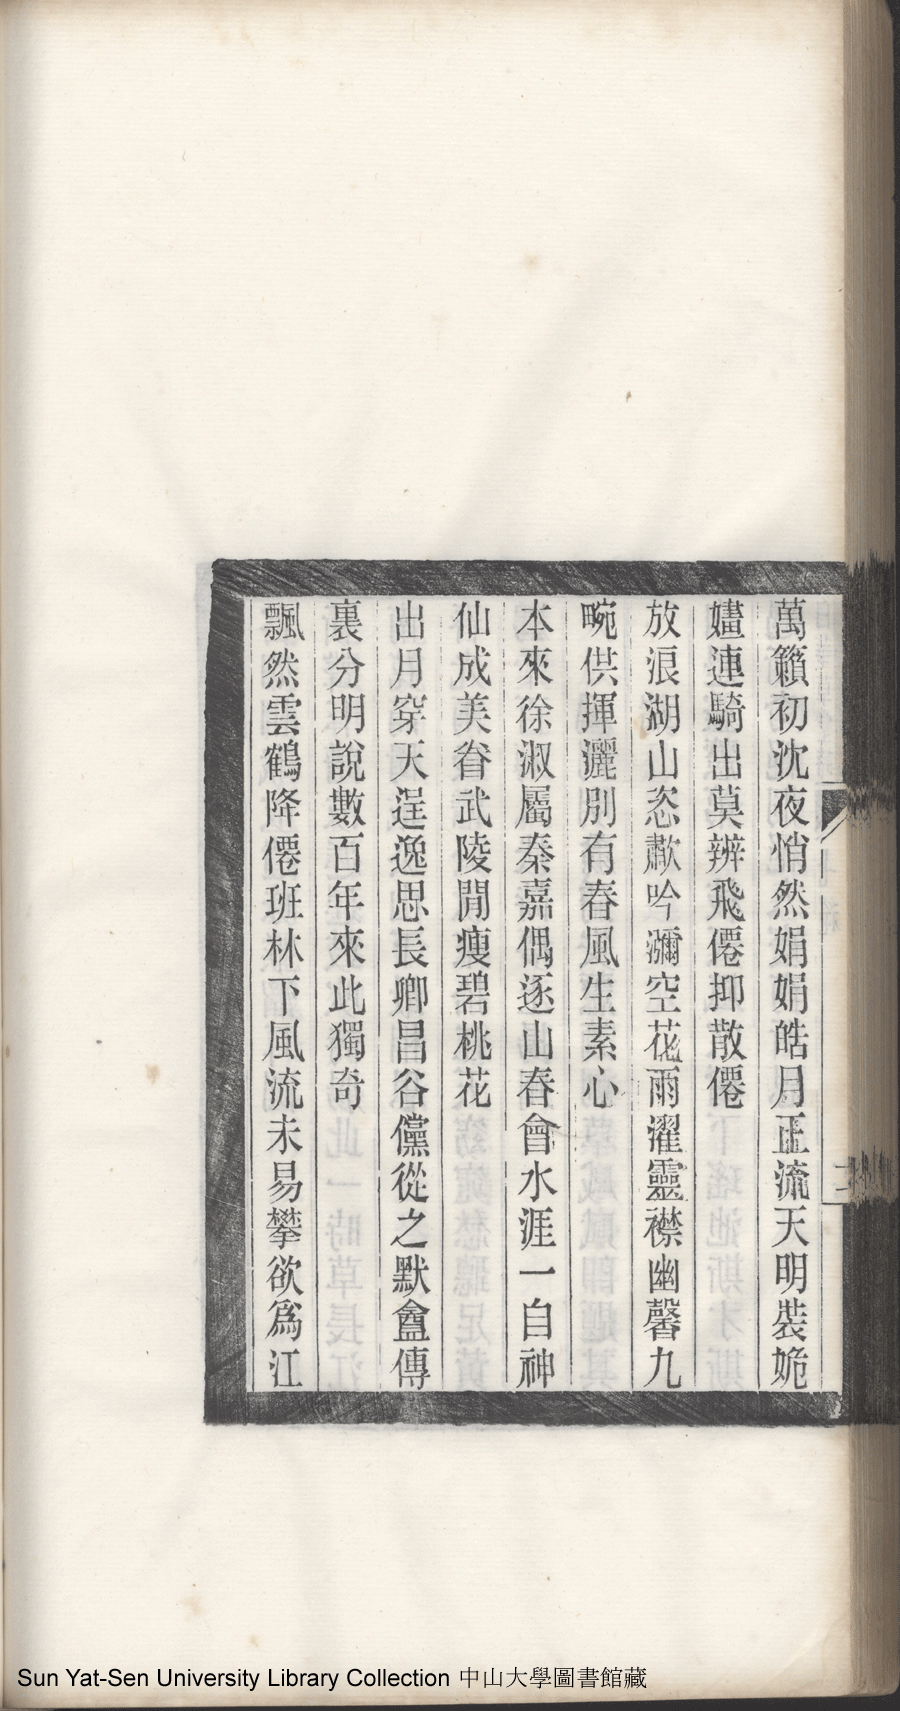 萬籟初沈夜悄然娟娟皓月正流天明裝婏
嫿連騎出莫辨飛僊抑散僊
放浪湖山恣歗吟瀰空花雨濯靈襟幽馨九
畹供揮灑別有春風生素心
本來徐淑屬秦嘉偶逐山春會水涯一自神
仙成美眷武陵閒瘦碧桃花
出月穿天逞逸思長卿昌谷儻從之默盦傳
裏分明說數百年來此獨奇
飄然雲鶴降僊班林下風流未易攀欲爲江
二
Sun Yat-Sen University Library Collection 中山大學圖書館藏